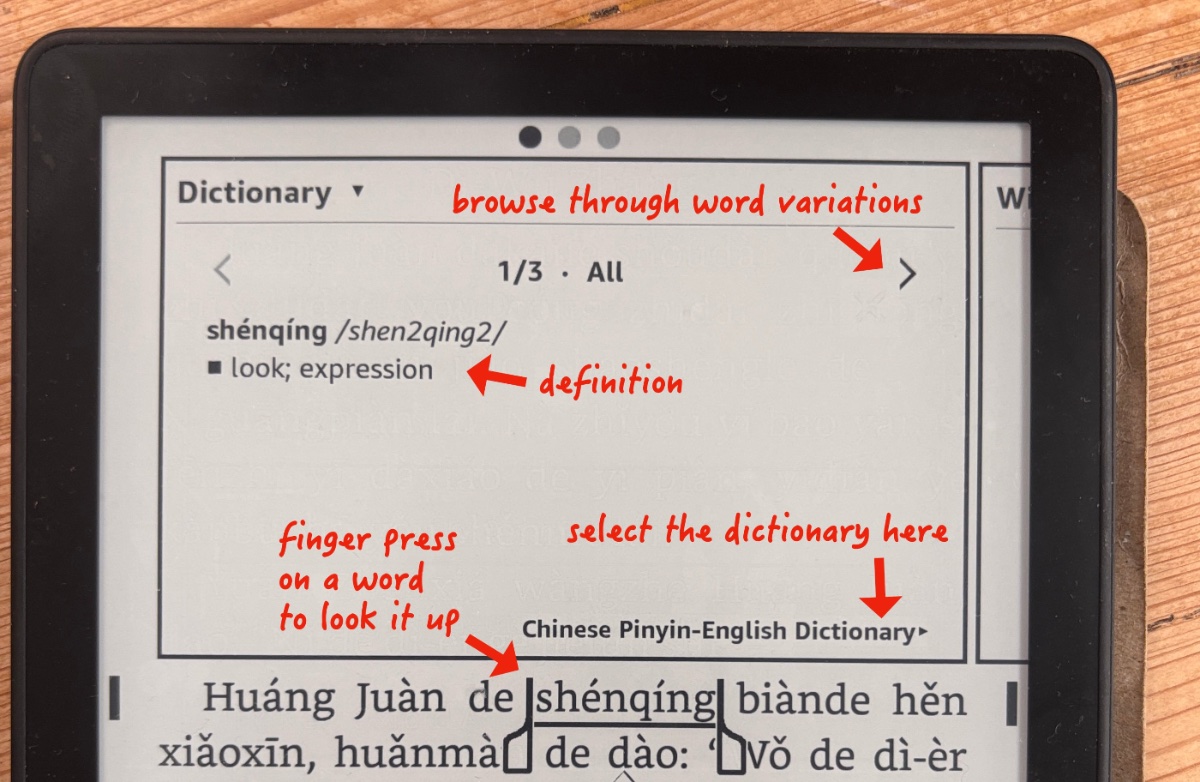 Dictionary ▼
browse through word variations
Wi
1/3 · All
shénqíng /shen2qing2/
■ look; expression
definition
finger press
on a word
to look it up
select the dictionary here
Chinese Pinyin-English Dictionary▸
Huáng Juàn de shénqíng biànde hěn
xiǎoxīn, huǎnmàn de dào: ‘Wǒ de dì-èr